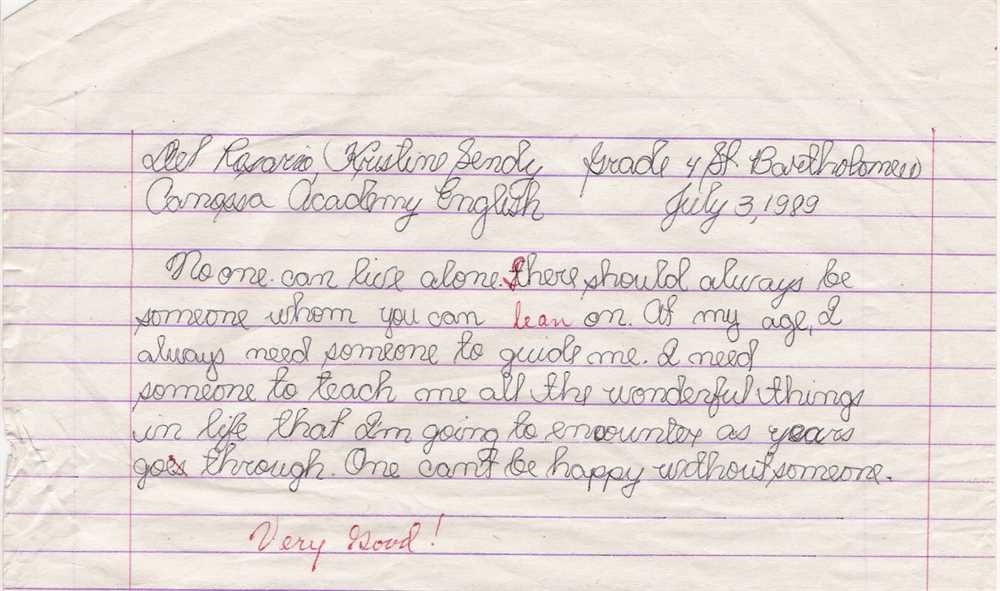 Del Rosario, Kristine Sendy Grade 4 St. Bartholomew
Canossa Academy English July 3, 1989
No one can live alone. There should always be
someone whom you can lean on. At my age, I
always need someone to guide me. I need
someone to teach me all the wonderful things
in life that I'm going to encounter as years
goes through. One can't be happy without someone.
Very Good!